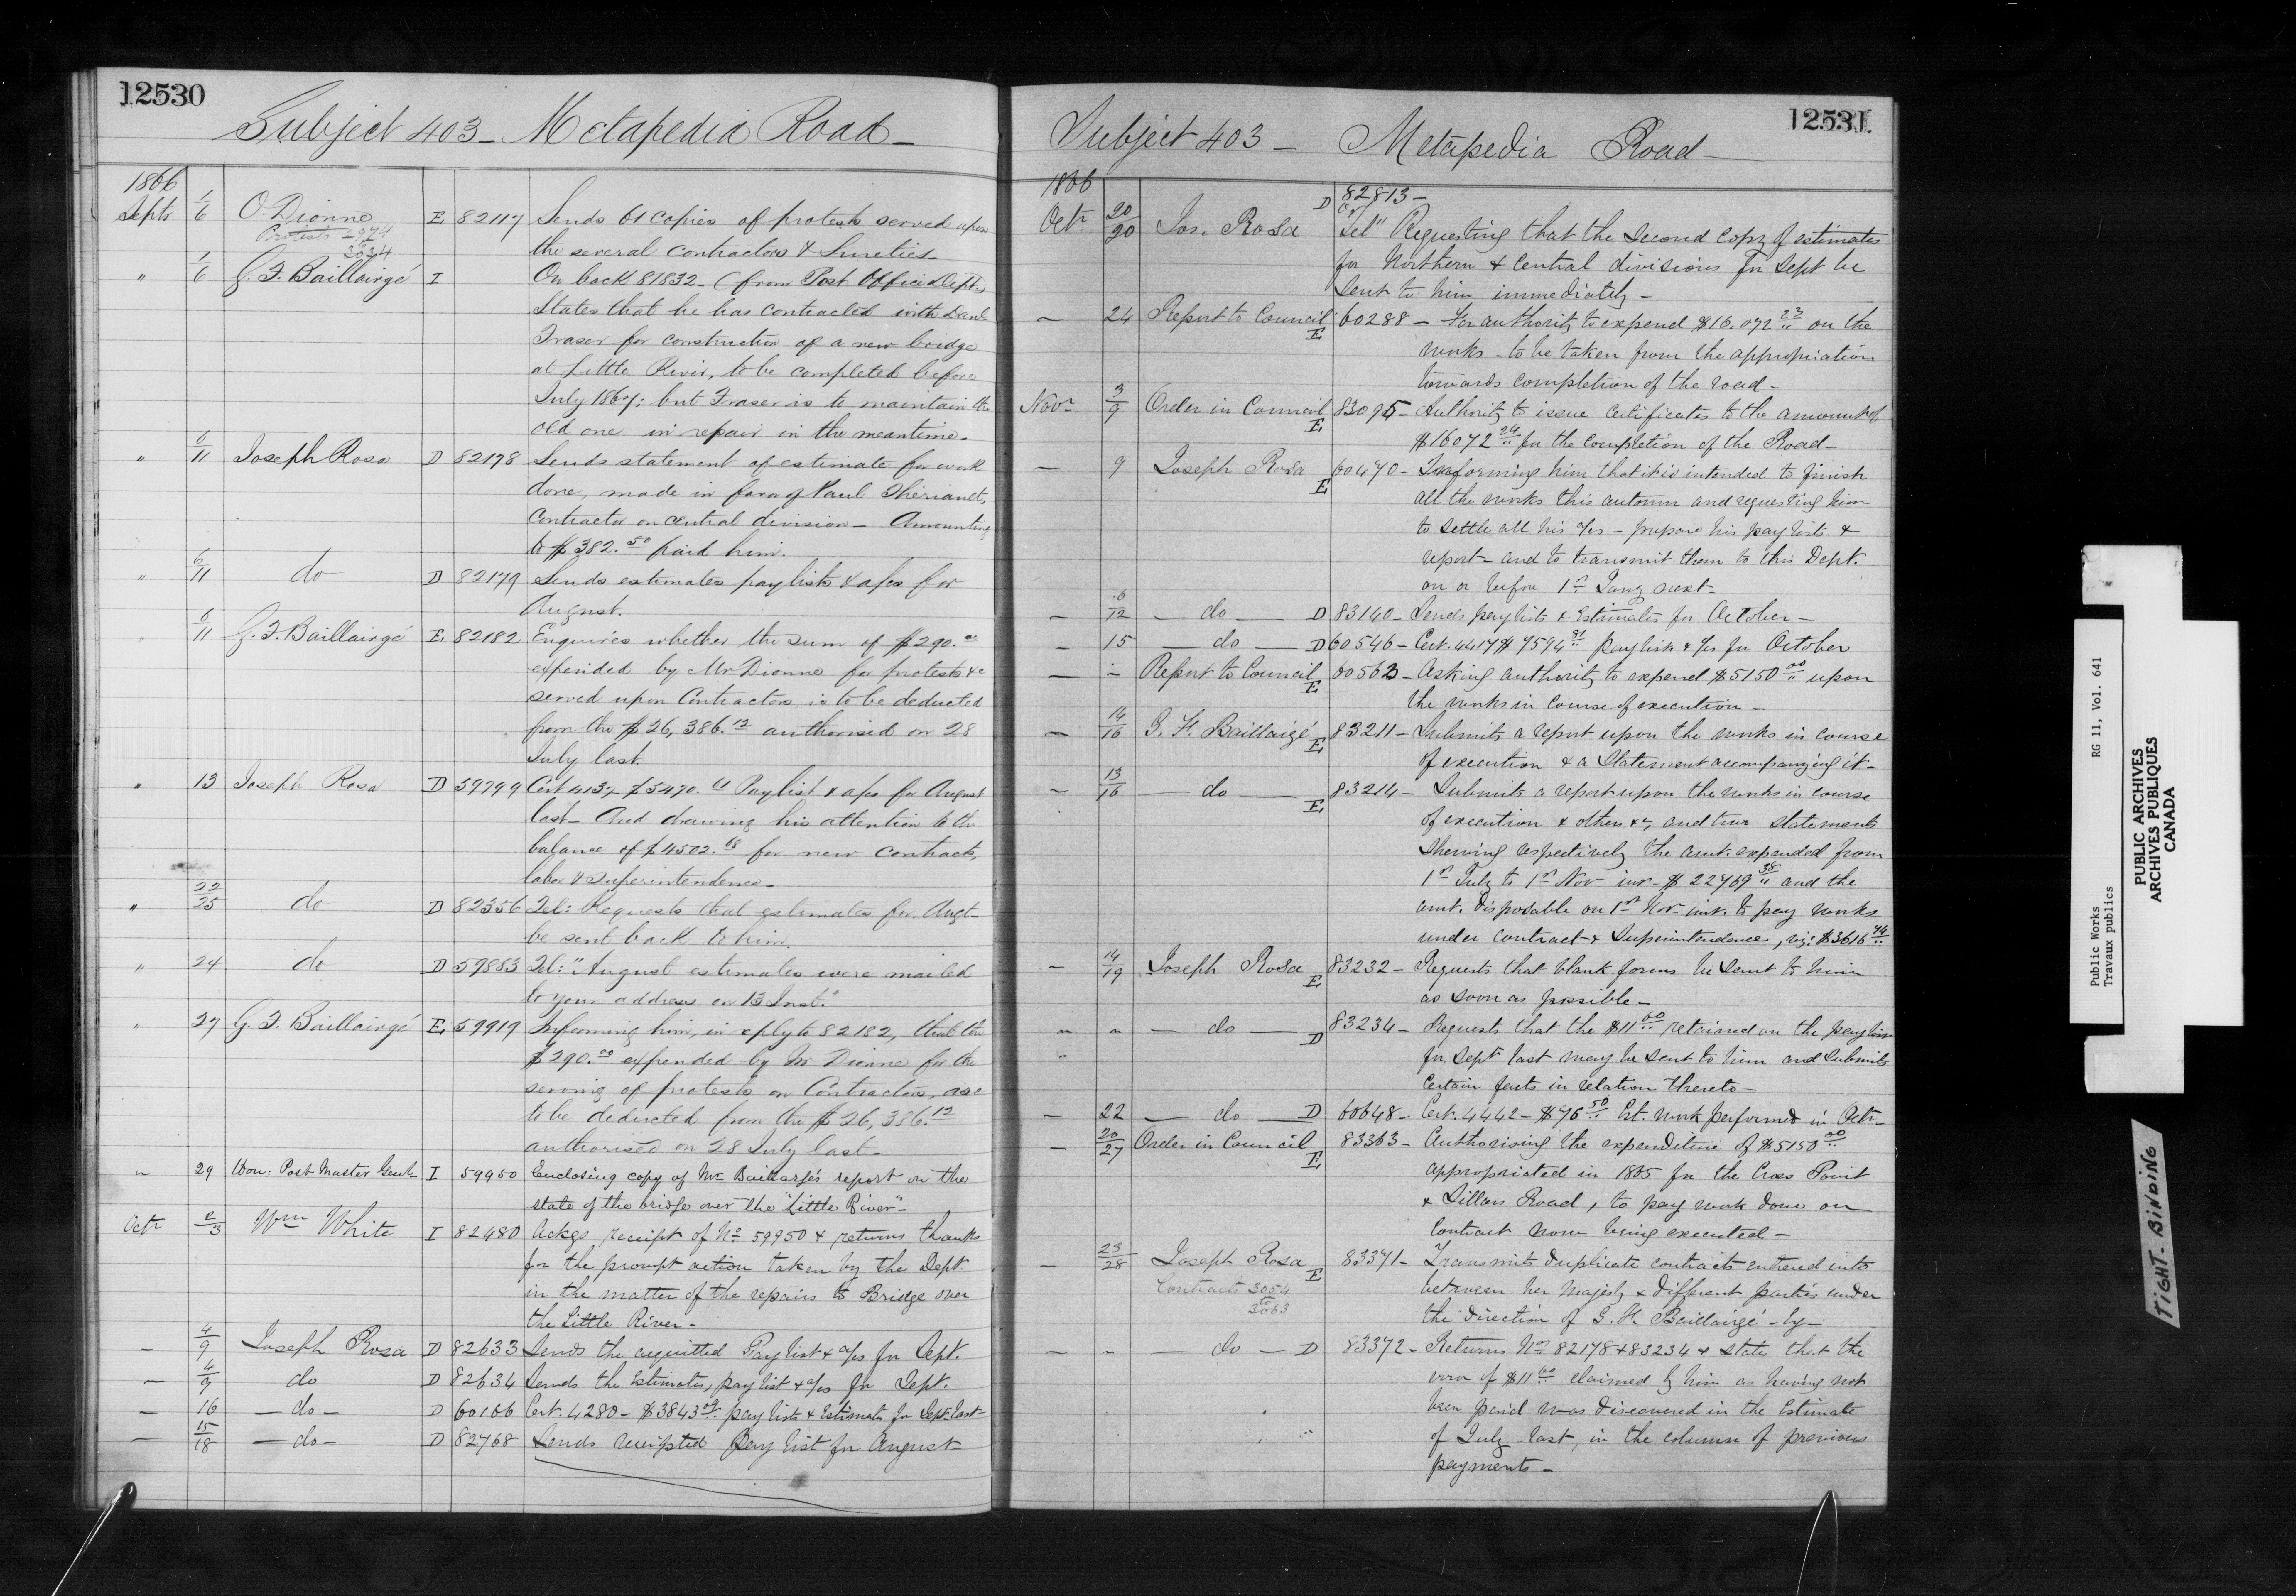 12530
Subject 403 - Metapedia Road -
1866
Septr 1/6 O. Dionne E 82117 Sends 61 copies of protests served upon
Protests 2974
to
3034
the several contractors & Sureties -
" 1/6 G. F. Baillairgé I On back 81832 - (from Post Office Dept.)
States that he has contracted with Danl
Fraser for construction of a new bridge
at Little River, to be completed before
July 1867; but Fraser is to maintain the
old one in repair in the meantime -
" 6/11 Joseph Rosa D 82178 Sends statement of estimate for work
done, made in favor of Paul Thériault,
Contractor on central division - Amounting
to $382.50 paid him.
" 6/11 do D 82179 Sends estimates paylists & a/cs for
August.
" 6/11 G. F. Baillairgé E 82182 Enquires whether the sum of $290.00
expended by Mr Dionne for protests &c
served upon Contractors is to be deducted
from the $26,386.12 authorised on 28
July last.
" 13 Joseph Rosa D 59799 Cert 4132 $5470. Paylist & a/cs for August
last - And drawing his attention to the
balance of $4502.68 for new contracts,
labor & superintendence -
" 22/25 do D 82356 Tel: Requests that estimates for Augt
be sent back to him.
" 24 do D 59883 Tel: "August estimates were mailed
to your address on 13 Inst."
" 27 G. F. Baillairgé E 59919 Informing him, in reply to 82182, that the
$290.00 expended by Mr Dionne for the
serving of protests on Contractors, are
to be deducted from the $26,386.12
authorised on 28 July last -
" 29 Hon: Post Master Genl I 59950 Enclosing copy of Mr Baillairgé's report on the
state of the bridge over the "Little River" -
Octr 2/3 Wm White I 82480 Ackgs receipt of No 59950 & returns thanks
for the prompt action taken by the Dept.
in the matter of the repairs to Bridge over
the Little River -
- 4/9 Joseph Rosa D 82633 Sends the acquitted Paylist & a/cs for Sept.
- 4/9 do D 82634 Sends the Estimates, paylist & a/cs for Sept.
- 16 - do - D 60166 Cert. 4280 - $3843.09 pay lists & Estimate for Sept. last -
- 15/18 - do - D 82768 Sends receipted Pay list for August
12531
Subject 403 - Metapedia Road -
1866
D 82813 -
Octr 20/20 Jos. Rosa "Tel" Requesting that the second copy of estimates
for Northern & Central divisions for Sept be
sent to him immediately -
- 24 Report to Council E 60288 - For authority to expend $16.072 23 on the
works - to be taken from the appropriation
towards completion of the road -
Novr 3/9 Order in Council E 83095 - Authority to issue certificates to the amount of
$16072 24 for the completion of the Road -
- 9 Joseph Rosa E 60470 - Informing him that it is intended to finish
all the works this autumn and requesting him
to settle all his a/cs - prepare his pay lists &
report - and to transmit them to this Dept.
on or before 1st Jany next -
- 6/12 - do - D 83140 - Sends paylists & Estimates for October -
- 15 - do - D 60546 - Cert. 4417 $7594 91 paylists & a/cs for October
- - Report to Council E 60563 - Asking authority to expend $5150 00 upon
the works in course of execution -
- 14/16 G. F. Baillairgé E 83211 - Submits a report upon the works in course
of execution & a Statement accompanying it -
- 13/16 - do - E 83214 - Submits a report upon the works in course
of execution & others &c, and two statements
shewing respectively the amt. expended from
1st July to 1st Nov inst - $22769 38 and the
amt. disposable on 1st Nov inst. to pay works
under contract & Superintendence, viz: $3616 74
- 14/19 Joseph Rosa E 83232 - Requests that blank forms be sent to him
as soon as possible -
" " - do - D 83234 - Requests that the $11 60 retained on the paylist
" for Sept last may be sent to him and submits
certain facts in relation thereto -
- 22 - do - D 60648 - Cert. 4442 - $96 50 Est. work performed in Octr -
- 20/27 Order in Council E 83363 - Authorising the expenditure of $5150 00
appropriated in 1865 for the Cross Point
& Dillons Road, to pay work done on
Contract now being executed -
- 23/28 Joseph Rosa E 83371 - Transmits duplicate contracts entered into
Contracts 3054
to
3063
between her Majesty & different parties under
the direction of G. F. Baillairgé - by -
- " - do - D 83372 - Returns Nos 82178 & 83234 & state that the
error of $11 60 claimed by him as having not
been paid was discovered in the Estimate
of July last, in the column of previous
payments -
Public Works RG 11, Vol. 641
Travaux publics
PUBLIC ARCHIVES
ARCHIVES PUBLIQUES
CANADA
TIGHT BINDING